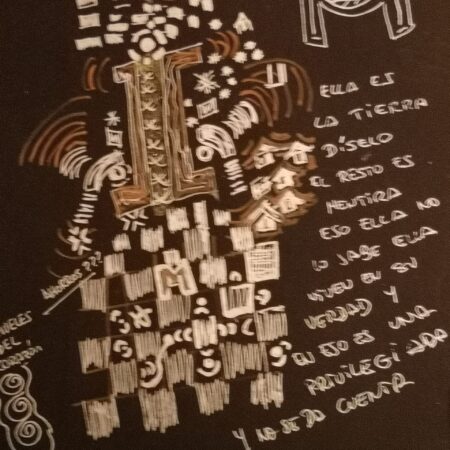 ELLA ES
LA TIERRA
DÍSELO
EL RESTO ES
MENTIRA
ESO ELLA NO
LO SABE ELLA
VIVE EN SU
VERDAD Y
EN ESO ES UNA
PRIVILEGIADA
Y NO SE DA CUENTA
M
DEL